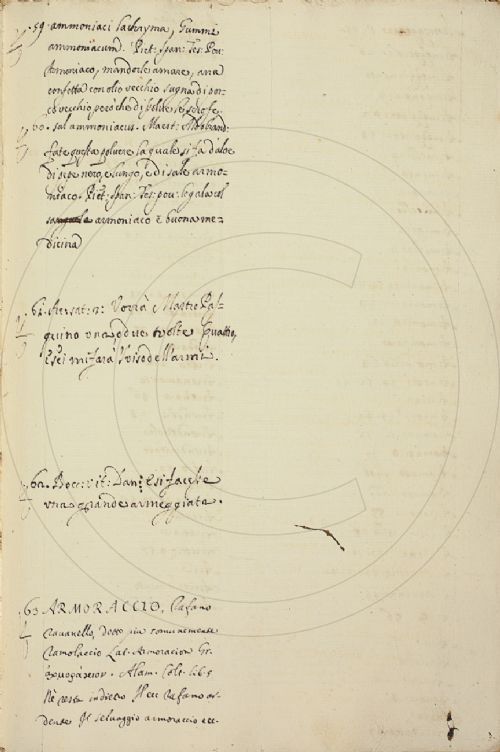 59 ammoniaci lachryma, Gummi
ammoniacum. Piet: Span: Tes: Pov:
Armoniaco, mandorle amare, ana
confetta con olio vecchio sugna di por-
co vecchio, però che di
60. sal ammoniacus. Maest: Aldobrand:
fate questa polvere la quale si fa d'aloe
di pepe nero, e lungo, e di sale armo-
niaco. Piet: Span: Tes: pov: legala col
armoniaco è buona me-
dicina
61. Vorrà Mastro Pal-
una, o due volte
e sei mi farà l'viso dell'armi.
62. Bocc: vit: Dan: E si facesse
una grande armeggiata.
63 ARMORACCIO, Rafano
Ravanello, detto più comunemente
Ramolaccio Lat. Armoracion Gr.
Alam. Colt. lib. 5
Nè resta indietro Il Rafano ar-
dente Il selvaggio armoraccio ecc.